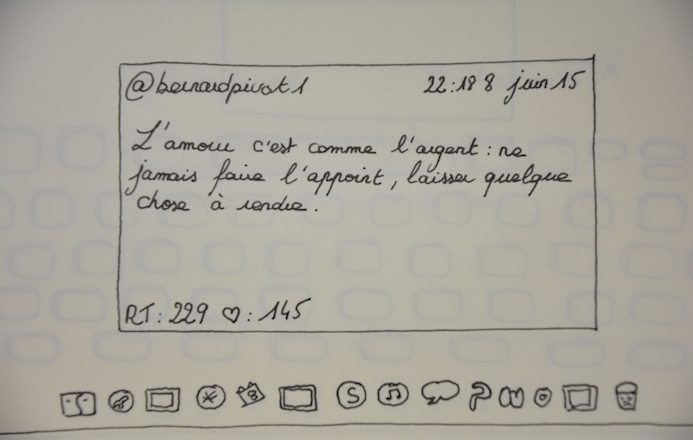 @bernardpivot1 22:18 8 juin 15
L'amour c'est comme l'argent : ne
jamais faire l'appoint, laisser quelque
chose à rendre.
RT : 229 ♡ : 145
S